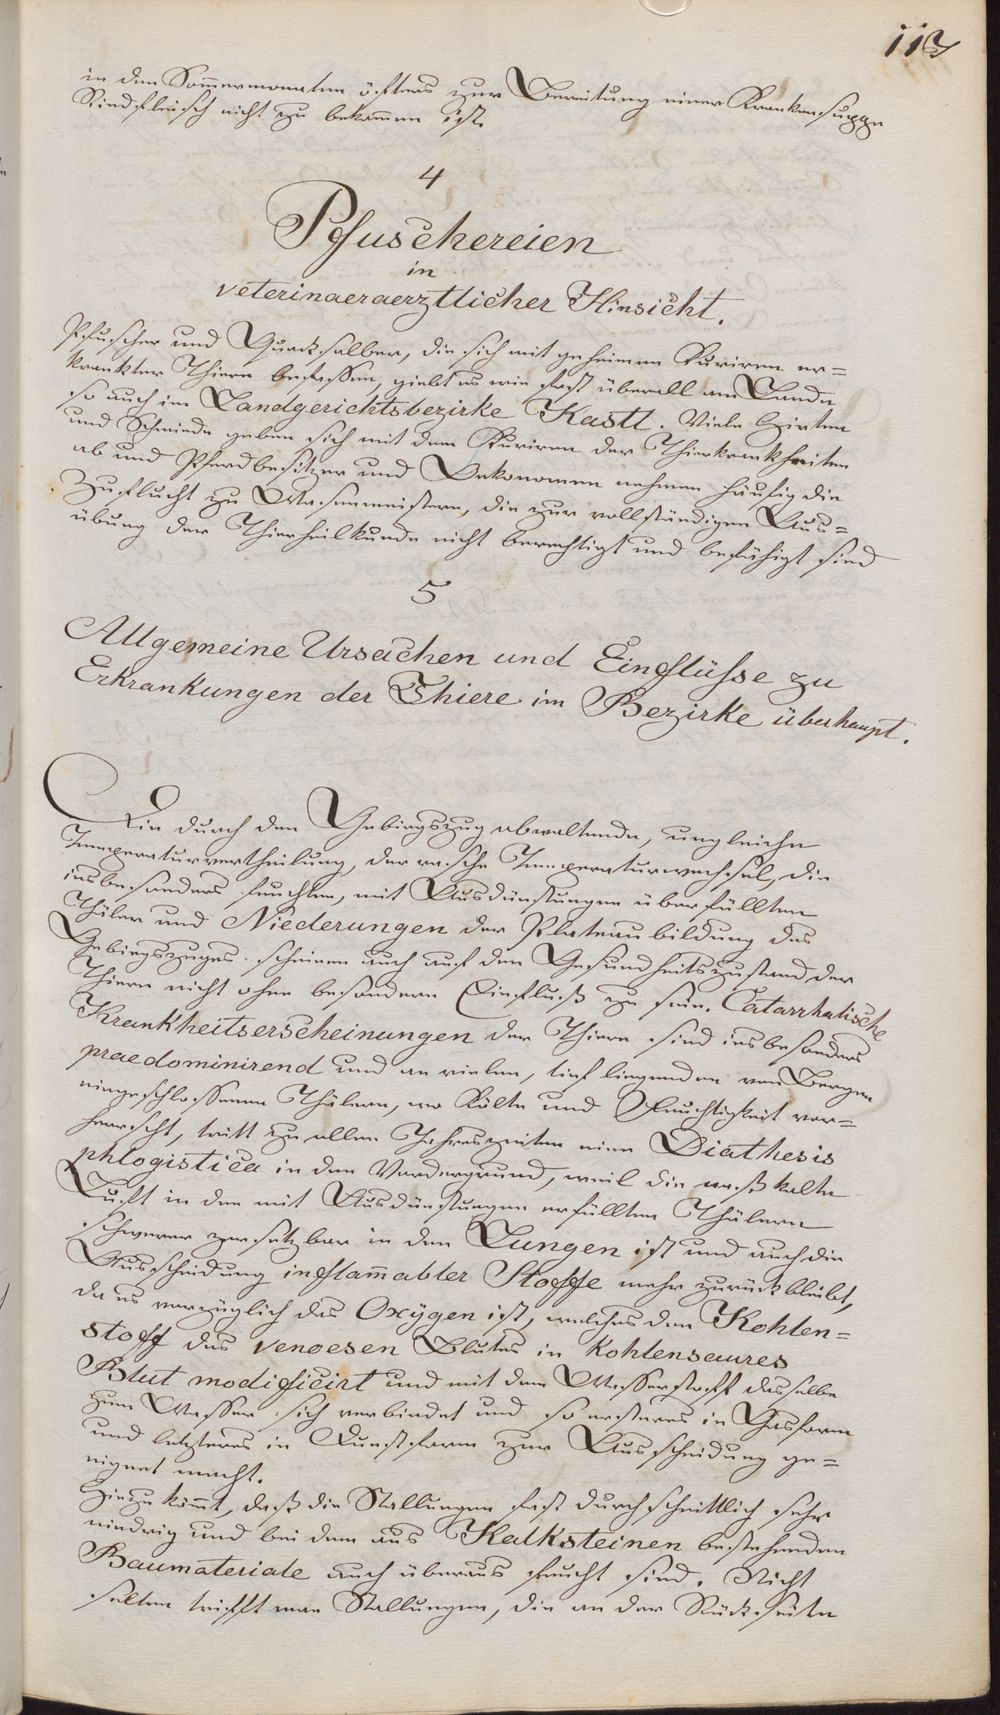 113
in den Sommermonaten öfters zur Bereitung einer Krankensuppe
Rindfleisch nicht zu bekommen ist.
4
Pfuschereien
in
veterinaeraerztlicher Hinsicht.
Pfuscher und Quacksalber, die sich mit geheimen Kuriren er=
krankter Thiere befassen, giebt es wie fast überall am Lande
so auch im Landgerichtsbezirke Kastl. Viele Hirten
und Schmiede geben sich mit dem Kuriren der Thierkrankheiten
ab und Pferdbesitzer und Oekonomen nehmen häufig die
Zuflucht zu Wasenmeistern, die zur vollständigen Aus=
übung der Thierheilkunde nicht berechtigt und befähigt sind
5
Allgemeine Ursachen und Einflüsse zu
Erkrankungen der Thiere im Bezirke überhaupt.
Die durch den Gebirgszug obwaltende, ungleiche
Temperaturvertheilung, der rasche Temperaturwechsel, die
insbesonders feuchten, mit Ausdünstungen überfüllten
Thäler und Niederungen der Plateaubildung des
Gebirgszuges scheinen auch auf den Gesundheitszustand der
Thiere nicht ohne besondern Einfluß zu sein. Catarrhalische
Krankheitserscheinungen der Thiere sind insbesonders
praedominirend und in vielen, tief liegenden von Bergen
eingeschlossenen Thälern, wo Kälte und Feuchtigkeit vor=
herrscht, tritt zu allen Jahreszeiten eine Diathesis
phlogistica in den Vordergrund, weil die naßkalte
Luft in den mit Ausdünstungen erfüllten Thälern
schwerer zersetzbar in den Lungen ist und auch die
Ausscheidung inflam̄abler Stoffe mehr zurückbleibt,
da es vorzüglich das Oxÿgen ist, welches den Kohlen=
stoff des venoesen Blutes in kohlensaures
Blut modificirt und mit dem Wasserstoff desselben
zum Wasser sich verbindet und so ersteres in Gasform
und letzteres in Dunstform zur Ausscheidung ge=
eignet macht.
Hiezu köm̄t, daß die Stallungen fast durchschnittlich sehr
niedrig und bei dem aus Kalksteinen bestehenden
Baumateriale auch überaus feucht sind. Nicht
selten trifft man Stallungen, die an der Rückseite